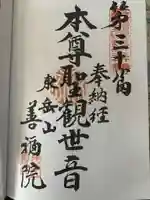 第三十番
奉納経
本尊聖観世音
東岳山
善福院